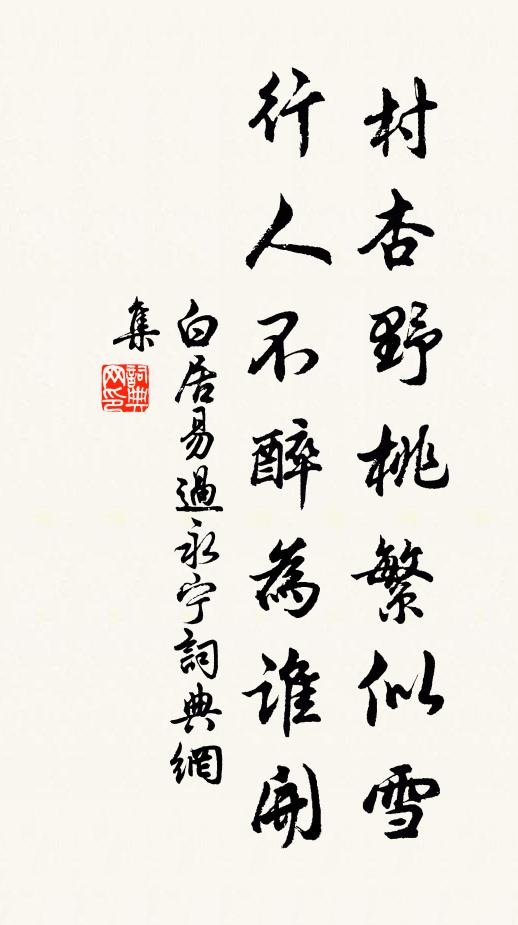 村杏野桃繁似雪
行人不醉為誰開
白居易過永宁詞典網
集
詞典
网印